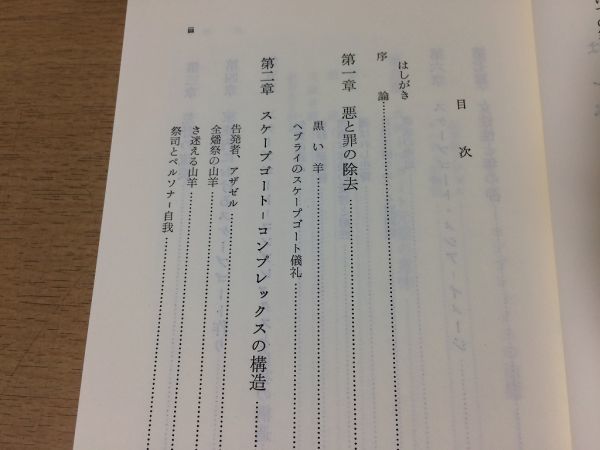 目次
はしがき
序論
第一章 悪と罪の除去
黒い羊
ヘブライのスケープゴート儀礼
第二章 スケープゴート−コンプレックスの構造
告発者、アザゼル
全燔祭の山羊
さ迷える山羊
祭司とペルソナ−自我